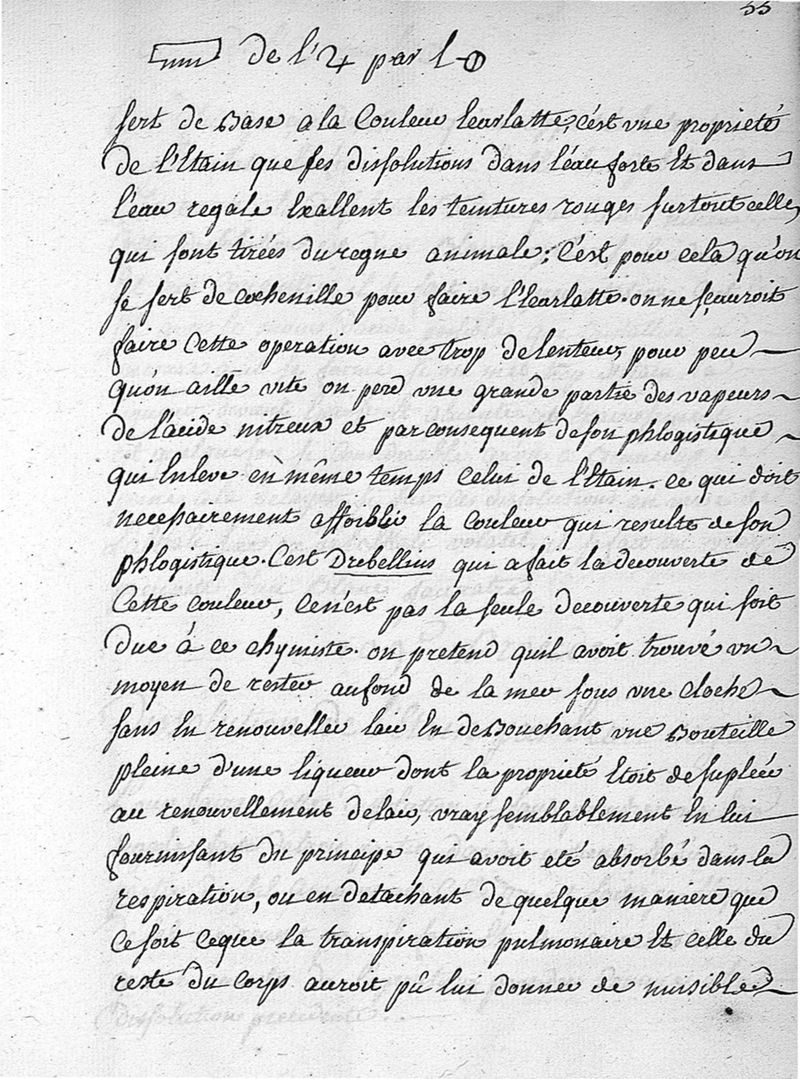 55
de l'♃ par l
sert de Base a la Couleur Ecarlatte, c'est vne proprieté
de l'Etain que ses dissolutions dans l'eau forte Et dans
l'eau regale Exallent les teintures rouges surtout celles
qui sont tirées du regne animale; C'est pour cela qu'on
se sert de cochenille pour faire l'Ecarlatte. on ne sçauroit
faire Cette operation avec trop de lenteur, pour peu
qu'on aille vite on perd vne grande partie des vapeurs
de l'acide nitreux et par consequent de son phlogistique
qui Enleve en même temps celui de l'Etain. ce qui doit
necessairement affoiblir la couleur qui resulte de son
phlogistique. C'est Drebellius qui a fait la decouverte de
Cette couleur, Ce n'est pas la seule decouverte qui soit
due à ce chymiste. on pretend quil avoit trouvé vn
moyen de rester au fond de la mer sous vne cloche
sans En renouveller l'air En deBouchant vne Bouteille
pleine d'une liqueur dont la proprieté Etoit de supléer
au renouvellement de l'air, vray semblablement En lui
fournissant du principe qui avoit eté absorbé dans la
respiration, ou en detachant de quelque maniere que
Ce soit Ceque la transpiration pulmonaire Et celle du
reste du Corps auroit pû lui donner de nuisible